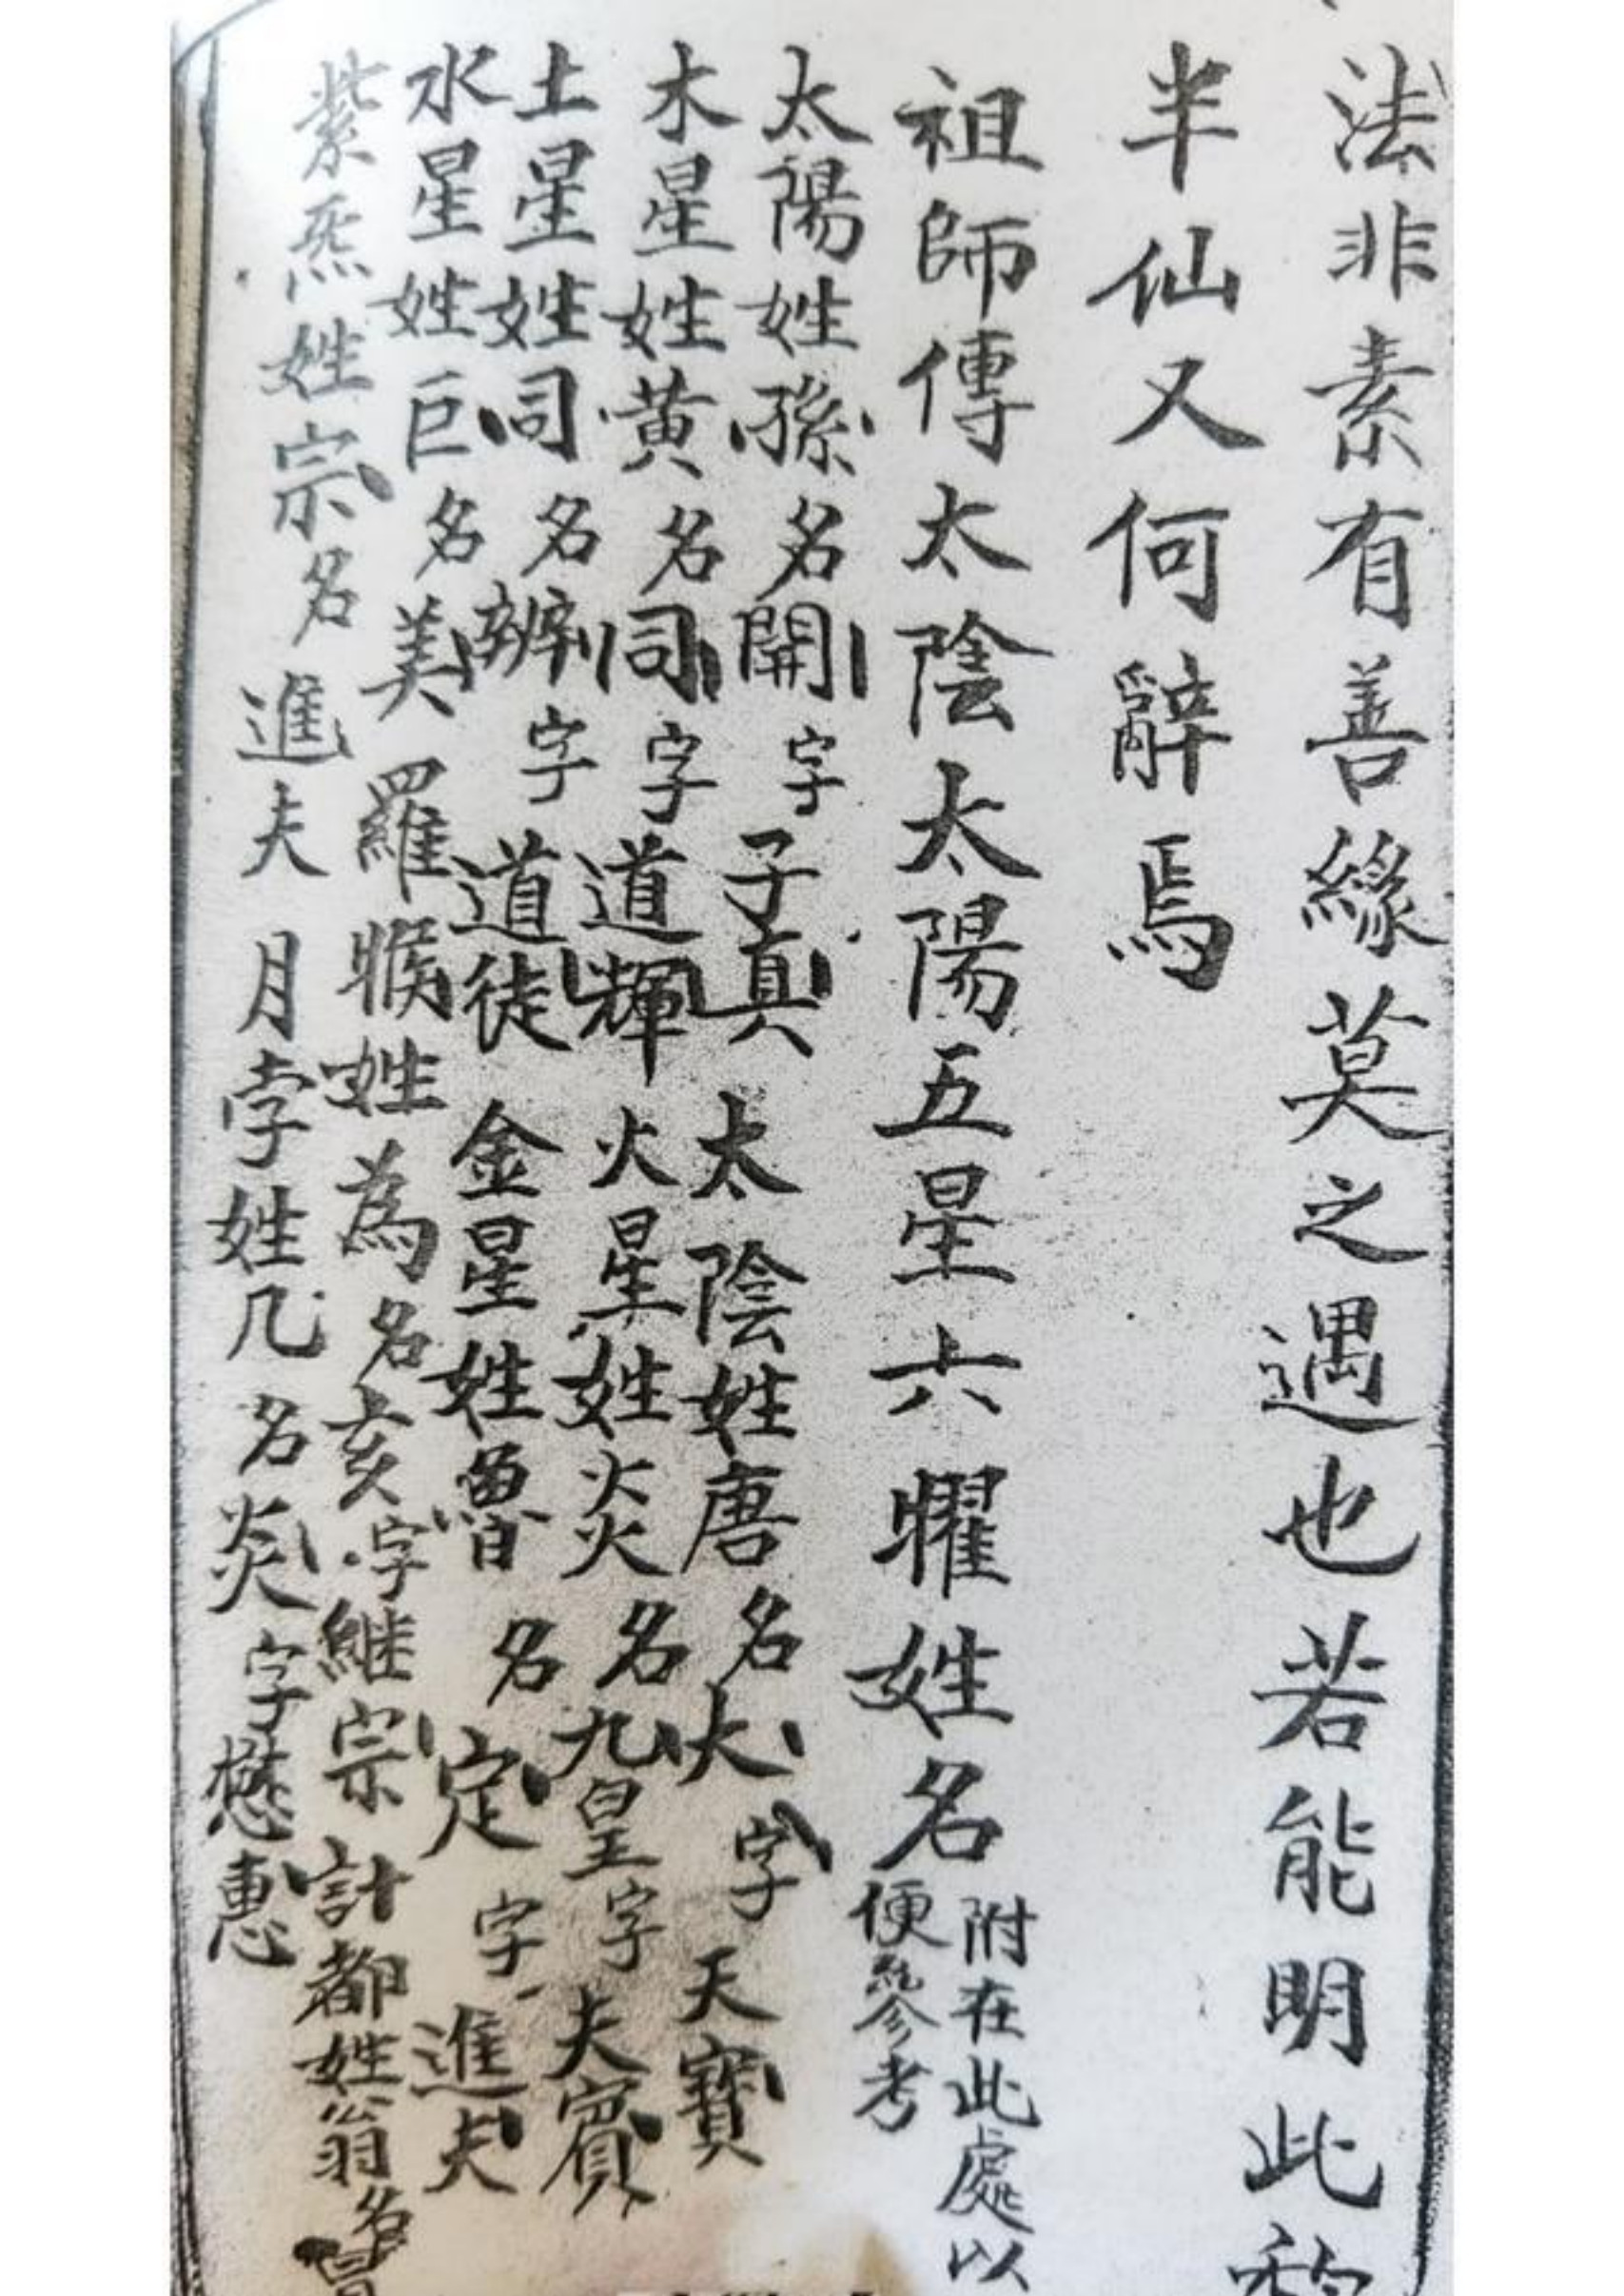 法非素有善緣莫之遇也若能明此
半仙又何辭焉
祖師傳太陰太陽五星六耀姓名
附在此處以
便參考
太陽姓孫名開字子真 太陰姓唐名大字天寶
木星姓黃名司字道輝 火星姓炎名九皇字夫賓
土星姓司名辦字道徒 金星姓魯名定字進夫
水星姓巨名美 羅睺姓為名亥字継宗 計都姓翁名
紫炁姓宗名進夫 月孛姓几名炎字懋惠